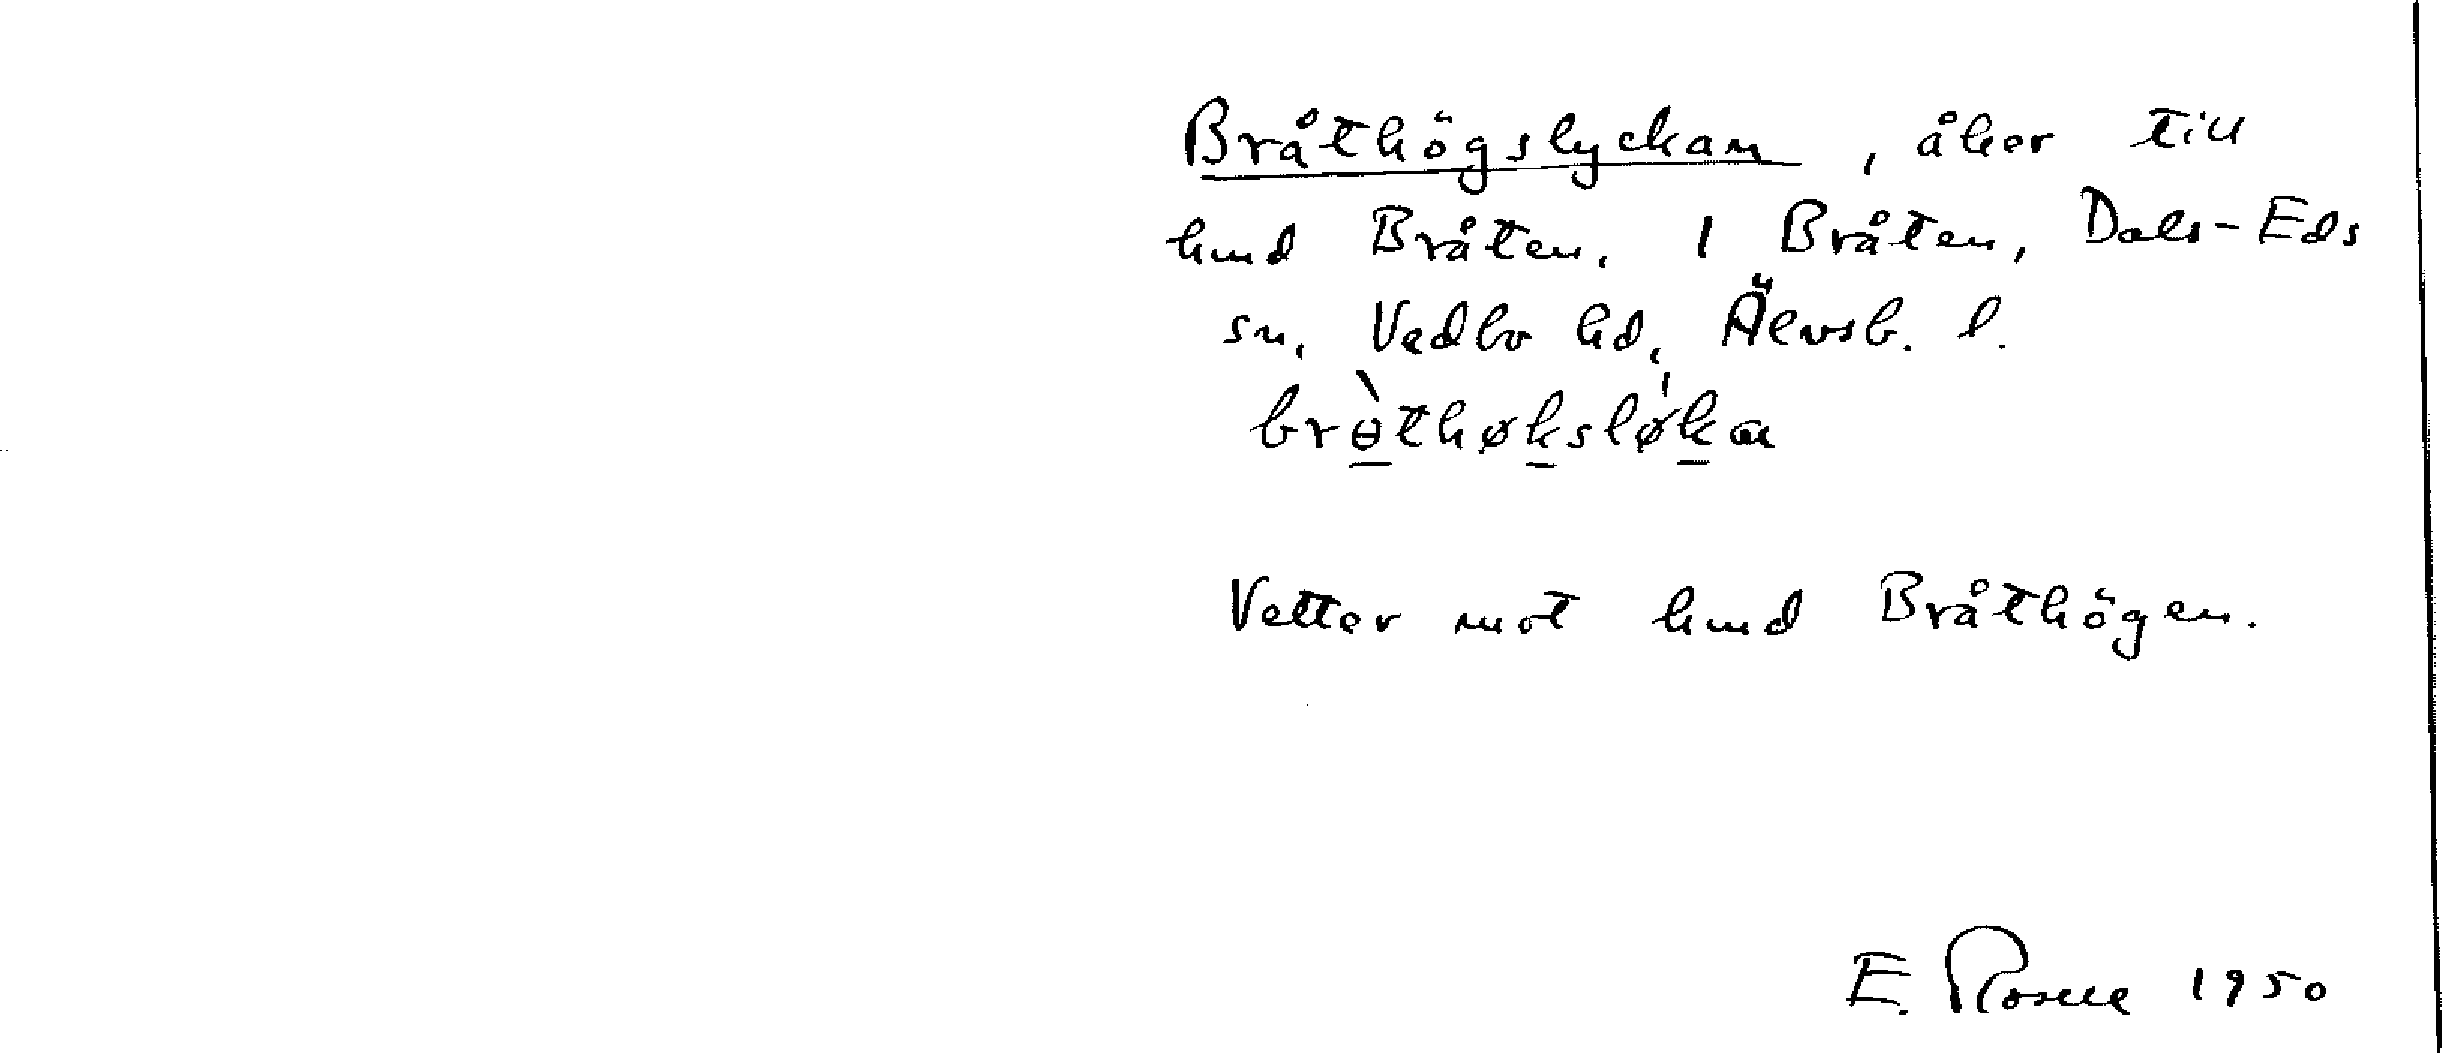 Bråthögslyckan, åker till
hmd Bråten, 1 Bråten, Dals-Eds
sn, Vedbo hd, Älvsb. l.
brɵ̀thøkslø̍ka
Vetter mot hmd Bråthögen.
E. Rosell 1950